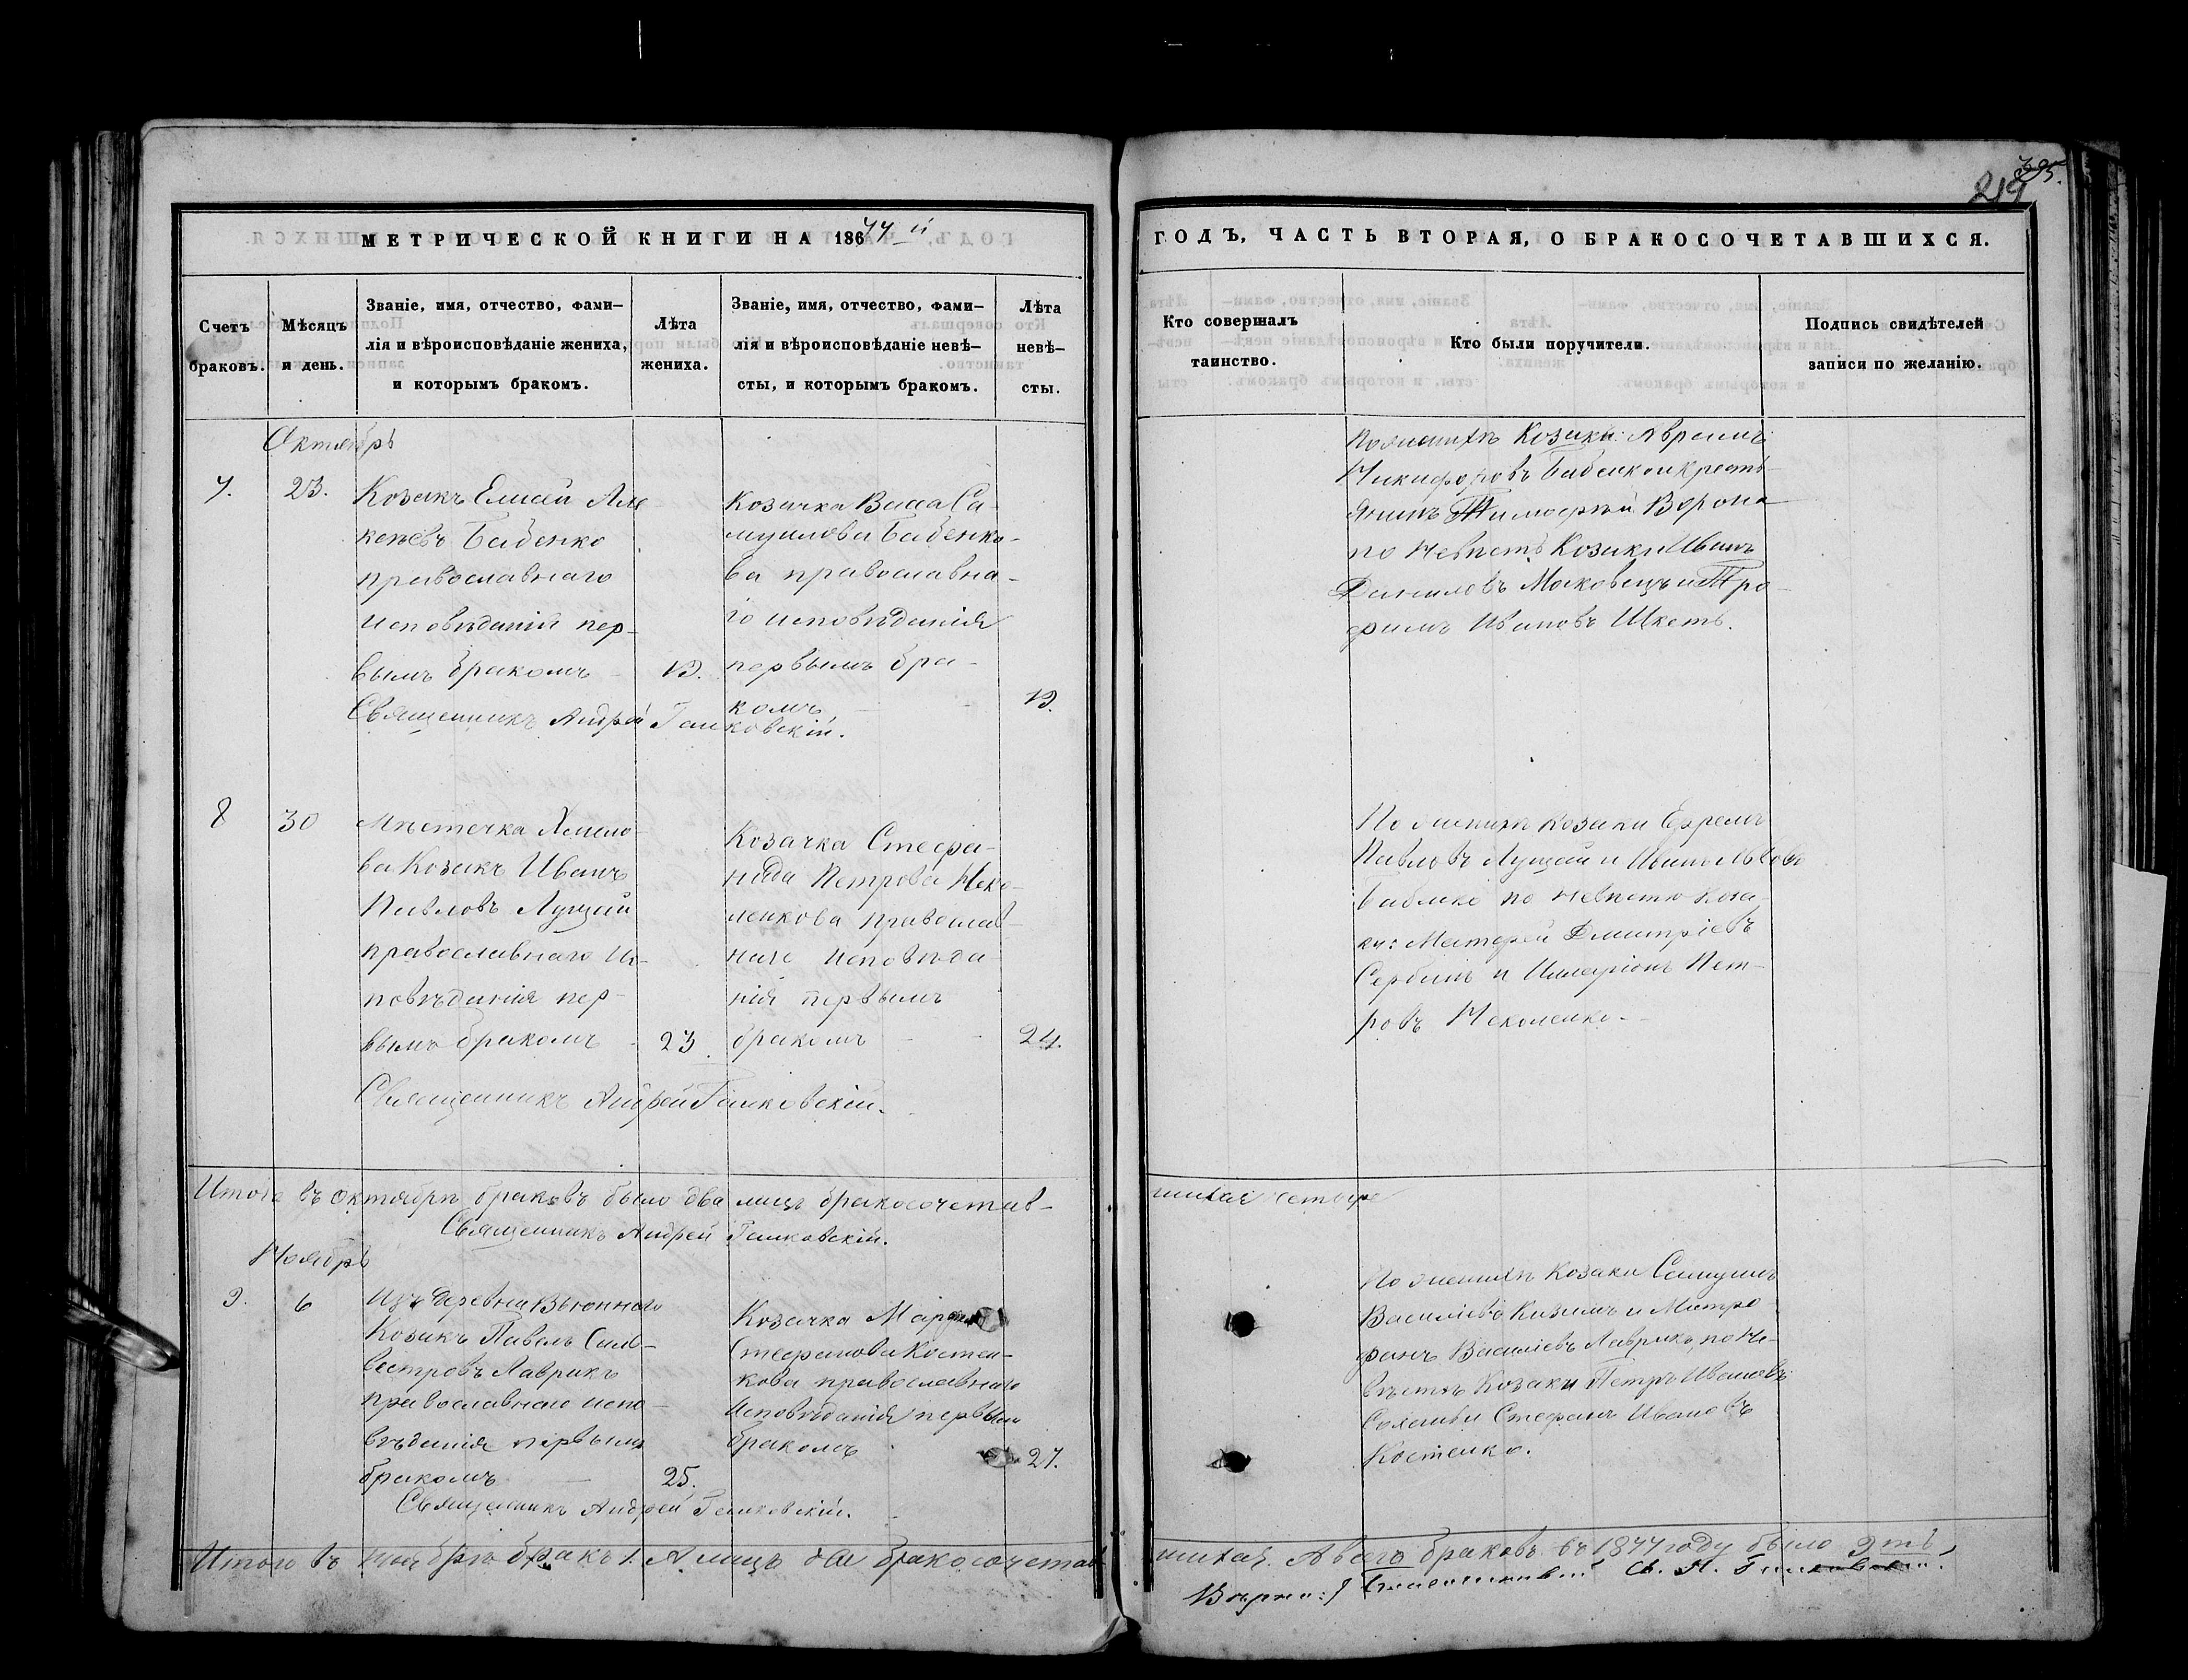 395.
219
МЕТРИЧЕСКОЙ КНИГИ НА 1877 й
ГОДЪ, ЧАСТЬ ВТОРАЯ, О БРАКОСОЧЕТАВШИХСЯ.
Счетъ браковъ.
Мѣсяцъ и день.
Званіе, имя, отчество, фами-
лія и вѣроисповѣданіе жениха,
и которымъ бракомъ.
Лѣта
жениха.
Званіе, имя, отчество, фами-
лія и вѣроисповѣданіе невѣ-
сты, и которымъ бракомъ.
Лѣта
невѣ-
сты.
Кто совершалъ
таинство.
Кто были поручители.
Подпись свидѣтелей
записи по желанію.
Октябрь
7.
23.
Козакъ Елисей
Бабенко
православнаго
исповѣданія пер-
вымъ бракомъ
19.
Священникъ Андрей Галковскій.
Козачка Васса Са-
муилова Бабенко-
ва православна-
го исповѣданія
первымъ бра-
комъ
19.
По женихѣ Козаки: Аврамъ
Никифоровъ Бабенко и кресть-
янинъ Тимофей Ворона
по невѣстѣ Козаки Иванъ
Даниловъ Московецъ и Тро-
фимъ Ивановъ Шкеть.
8
30
Мѣстечка
ва Козакъ Иванъ
Павловъ Лущай
православнаго ис-
повѣданія пер-
вымъ бракомъ
23.
Священникъ Андрей Галковскій.
Козачка Стефа-
нида Петрова
ленкова православ-
наго исповѣда-
нія первымъ
бракомъ
24.
По женихѣ козаки Ефремъ
Павловъ Лущай и Иванъ
по невѣстѣ Коза-
ки: Матфей Дмитріевъ
Сербинъ и Иларіонъ Пет-
ровъ
Итого въ октябрѣ браковъ было два лицъ бракосочетав-
шихся четыре
Священникъ Андрей Галковскій.
Ноябрь
9.
6
Изъ деревни Вьюннаго
Козакъ Павелъ Силь-
вестровъ Лаврикъ
православнаго испо-
вѣданія первымъ
бракомъ
25.
Священникъ Андрей Галковскій.
Козачка Марфа
Стефанова Костен-
кова православнаго
исповѣданія первым
бракомъ
21.
По женихѣ Козаки Самуилъ
Василіевъ и Митро-
фанъ Василіевъ Лаврикъ, по не-
вѣстѣ Козаки Петръ Ивановъ
и Стефанъ Ивановъ
Костенко.
Итого въ ноябрѣ бракъ 1. А лицъ два бракосочетав-
шихся. А всего браковъ въ 1877 году было 9ть,
Вѣрно: Св. А. Галковскій.